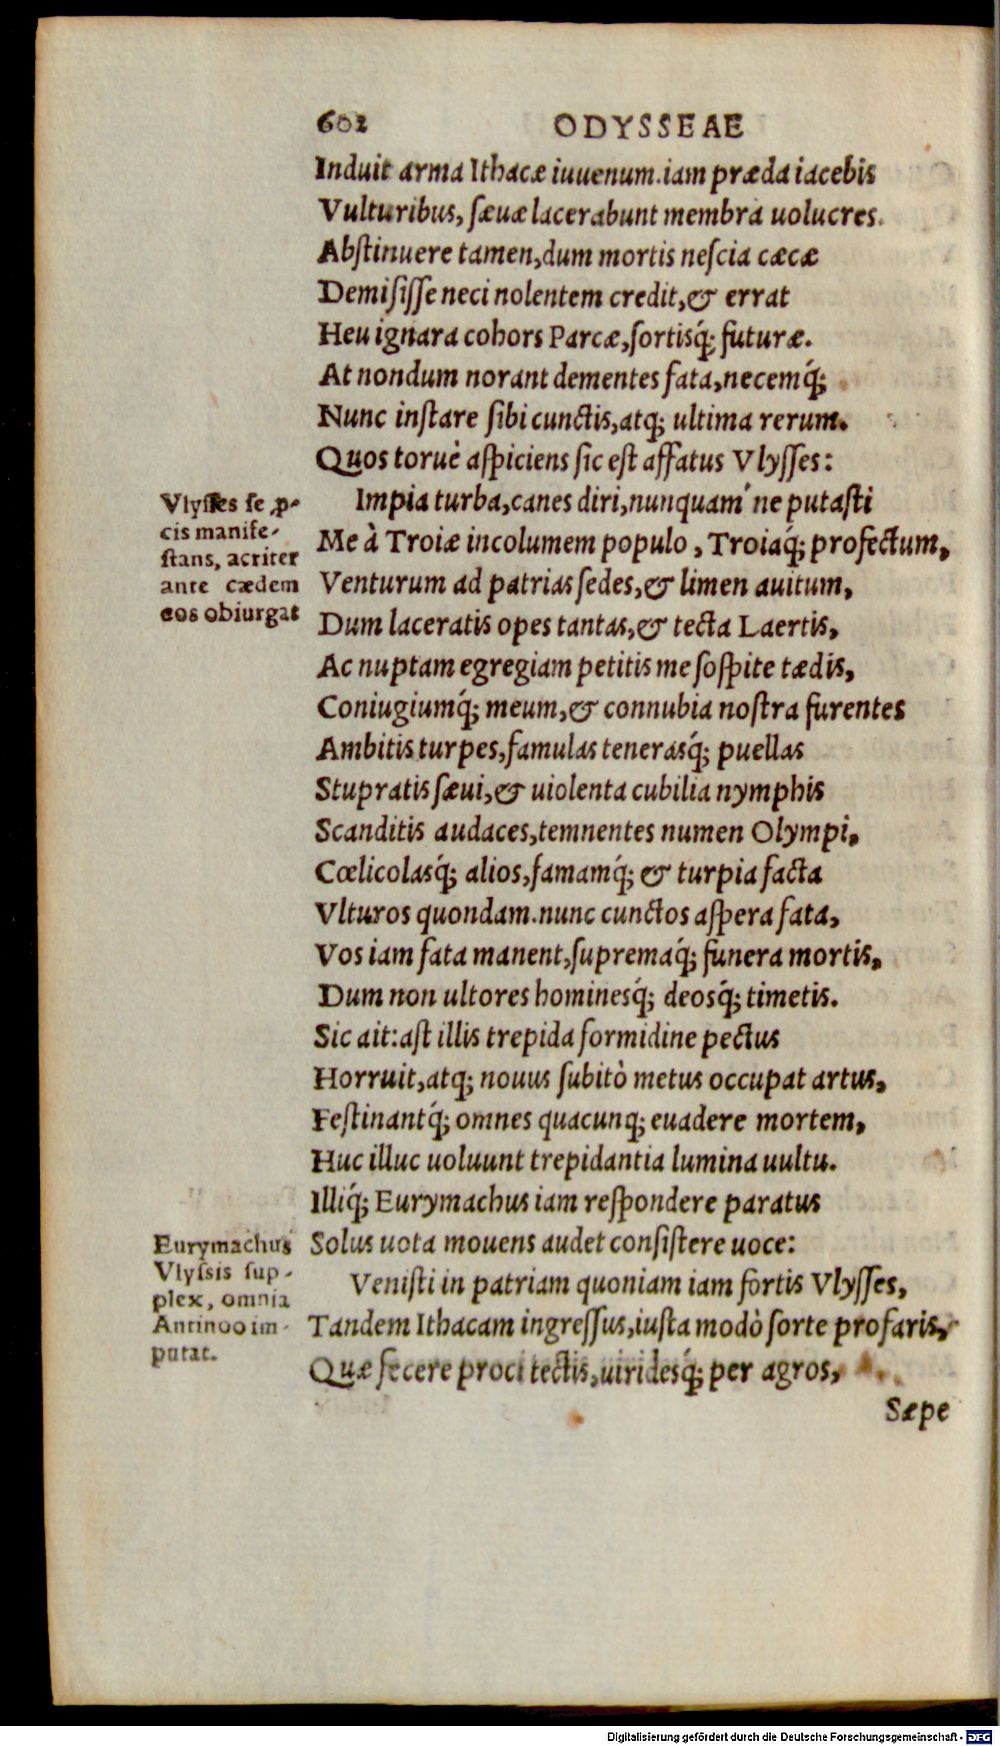 602 ODYSSEAE
Induit arma Ithacæ iuuenum.iam præda iacebis
Vulturibus, ſæuæ lacerabunt membra uolucres.
Abſtinuere tamen,dum mortis neſcia cæcæ
Demiſiſſe neci nolentem credit,& errat
Heu ignara cohors Parcæ,ſortisq́; futuræ.
At nondum norant dementes fata,necemq́;
Nunc inſtare ſibi cunctis,atq; ultima rerum.
Quos toruè aſpiciens ſic eſt affatus Vlyſſes:
Vlyſſes ſe ꝓ-
cis manife-
ſtans, acriter
ante cædem
eos obiurgat
Impia turba,canes diri,nunquam ́ne putaſti
Me à Troiæ incolumem populo, Troiaq́; profectum,
Venturum ad patrias ſedes,& limen auitum,
Dum laceratis opes tantas,& tecta Laertis,
Ac nuptam egregiam petitis me ſoſpite tædis,
Coniugiumq́; meum,& connubia noſtra furentes
Ambitis turpes,famulas tenerasq́; puellas
Stupratis ſæui,& uiolenta cubilia nymphis
Scanditis audaces,temnentes numen Olympi,
Cœlicolasq́; alios,famamq́; & turpia facta
Vlturos quondam.nunc cunctos aſpera fata,
Vos iam fata manent,ſupremaq́; funera mortis,
Dum non ultores hominesq́; deosq́; timetis.
Sic ait:aſt illis trepida formidine pectus
Horruit,atq; nouus ſubitò metus occupat artus,
Feſtinantq́; omnes quacunq; euadere mortem,
Huc illuc uoluunt trepidantia lumina uultu.
Illiq́; Eurymachus iam reſpondere paratus
Solus uota mouens audet conſiſtere uoce:
Eurymachus
Vlyſsis ſup-
plex, omnia
Antinoo im-
putat.
Veniſti in patriam quoniam iam fortis Vlyſſes,
Tandem Ithacam ingreſſus,iuſta modò ſorte profaris,
Quæ fecere proci tectis,uiridesq́; per agros,
Sæpe
Digitalisierung gefördert durch die Deutsche Forschungsgemeinschaft - DFG